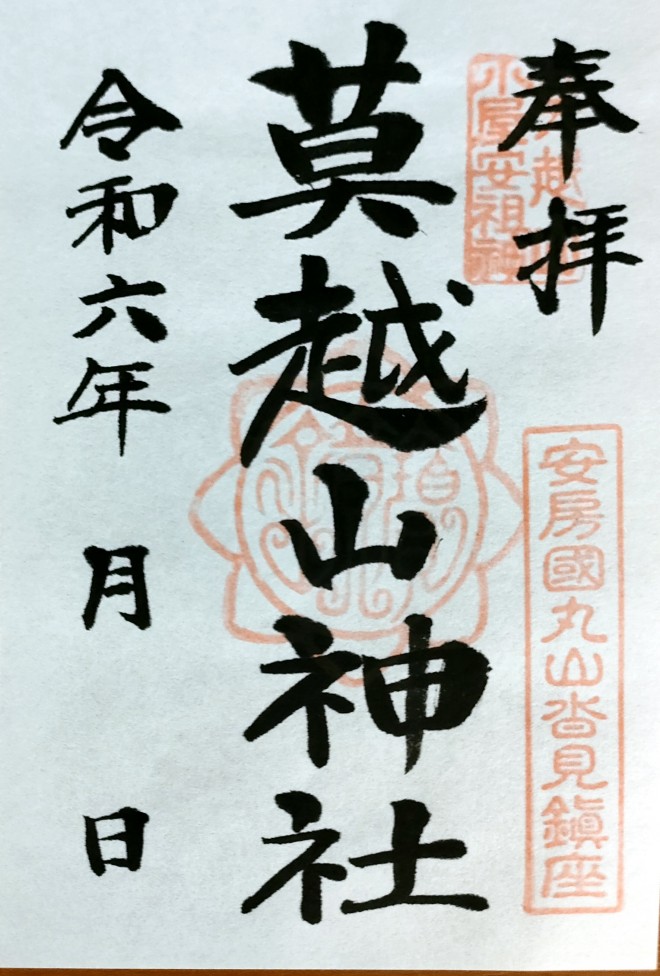 奉拝
小屋安祖神
安房國丸山沓見鎮座
莫越山神社
令和六年 月 日